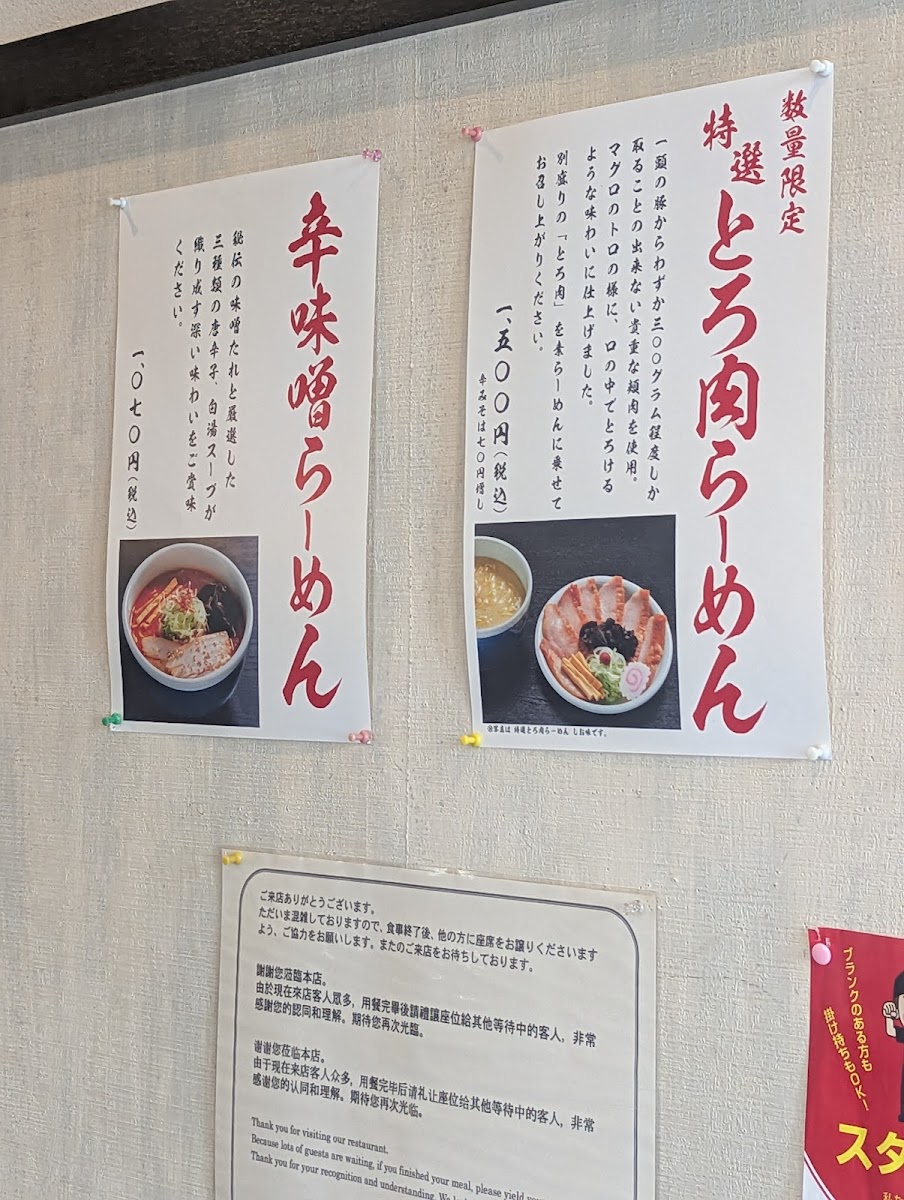 数量限定
特選 とろ肉らーめん
一頭の豚からわずか三〇〇グラム程度しか
取ることの出来ない貴重な頬肉を使用。
マグロのトロの様に、口の中でとろける
ような味わいに仕上げました。
別盛りの「とろ肉」を素らーめんに乗せて
お召し上がりください。
一、五〇〇円(税込)
辛みそは七〇円増し
※写真は 特選とろ肉らーめん しお味です。
辛味噌らーめん
秘伝の味噌たれと厳選した
三種類の唐辛子、白湯スープが
織り成す深い味わいをご賞味
ください。
一、〇七〇円(税込)
ご来店ありがとうございます。
ただいま混雑しておりますので、食事終了後、他の方に座席をお譲りくださいます
よう、ご協力をお願いします。またのご来店をお待ちしております。
謝謝您蒞臨本店。
由於現在來店客人眾多，用餐完畢後請禮讓座位給其他等待中的客人，非常
感謝您的認同和理解。期待您再次光臨。
谢谢您莅临本店。
由于现在来店客人众多，用餐完毕后请礼让座位给其他等待中的客人，非常
感谢您的认同和理解。期待您再次光临。
Thank you for visiting our restaurant.
Because lots of guests are waiting, if you finished your meal, please yield
Thank you for your recognition and understanding. We
ブランクのある方も
掛け持ちもOK!
スタ